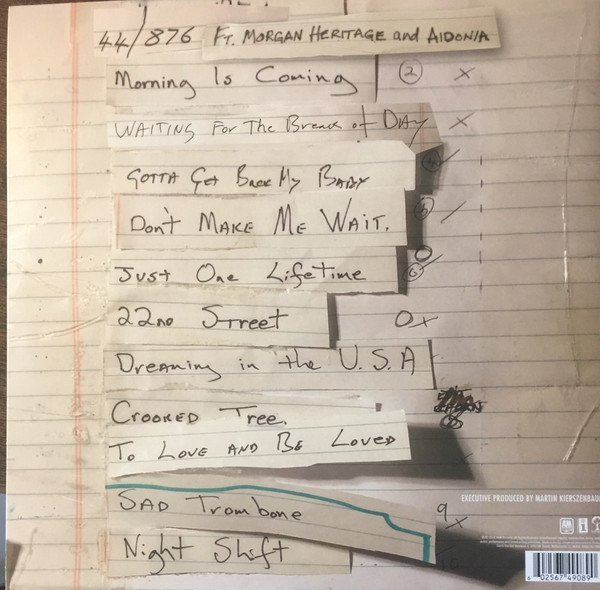 44/876 FT. MORGAN HERITAGE and AIDONIA
Morning Is Coming 2 x
WAITING For The Break of DAY x
GOTTA Get Back My BABY
DON'T MAKE ME WAIT.
Just One Lifetime 6
22nd Street 0x
Dreaming in the U.S.A
CROOKED TREE.
To Love AND Be Loved
EXECUTIVE PRODUCED BY MARTIN KIERSZENBAU
SAD Trombone 9 x
Night Shift 10
6 02567 49089